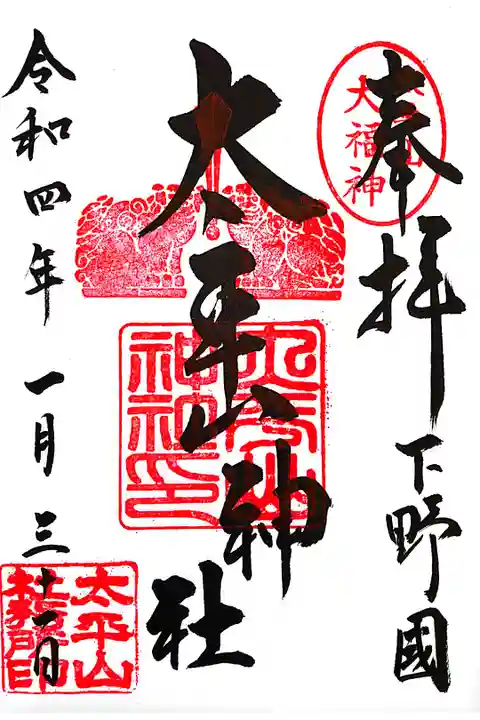 奉拝
下野國
太平山神社
令和四年一月三十一日
大福神
太平山神社印
太平山
社務所印